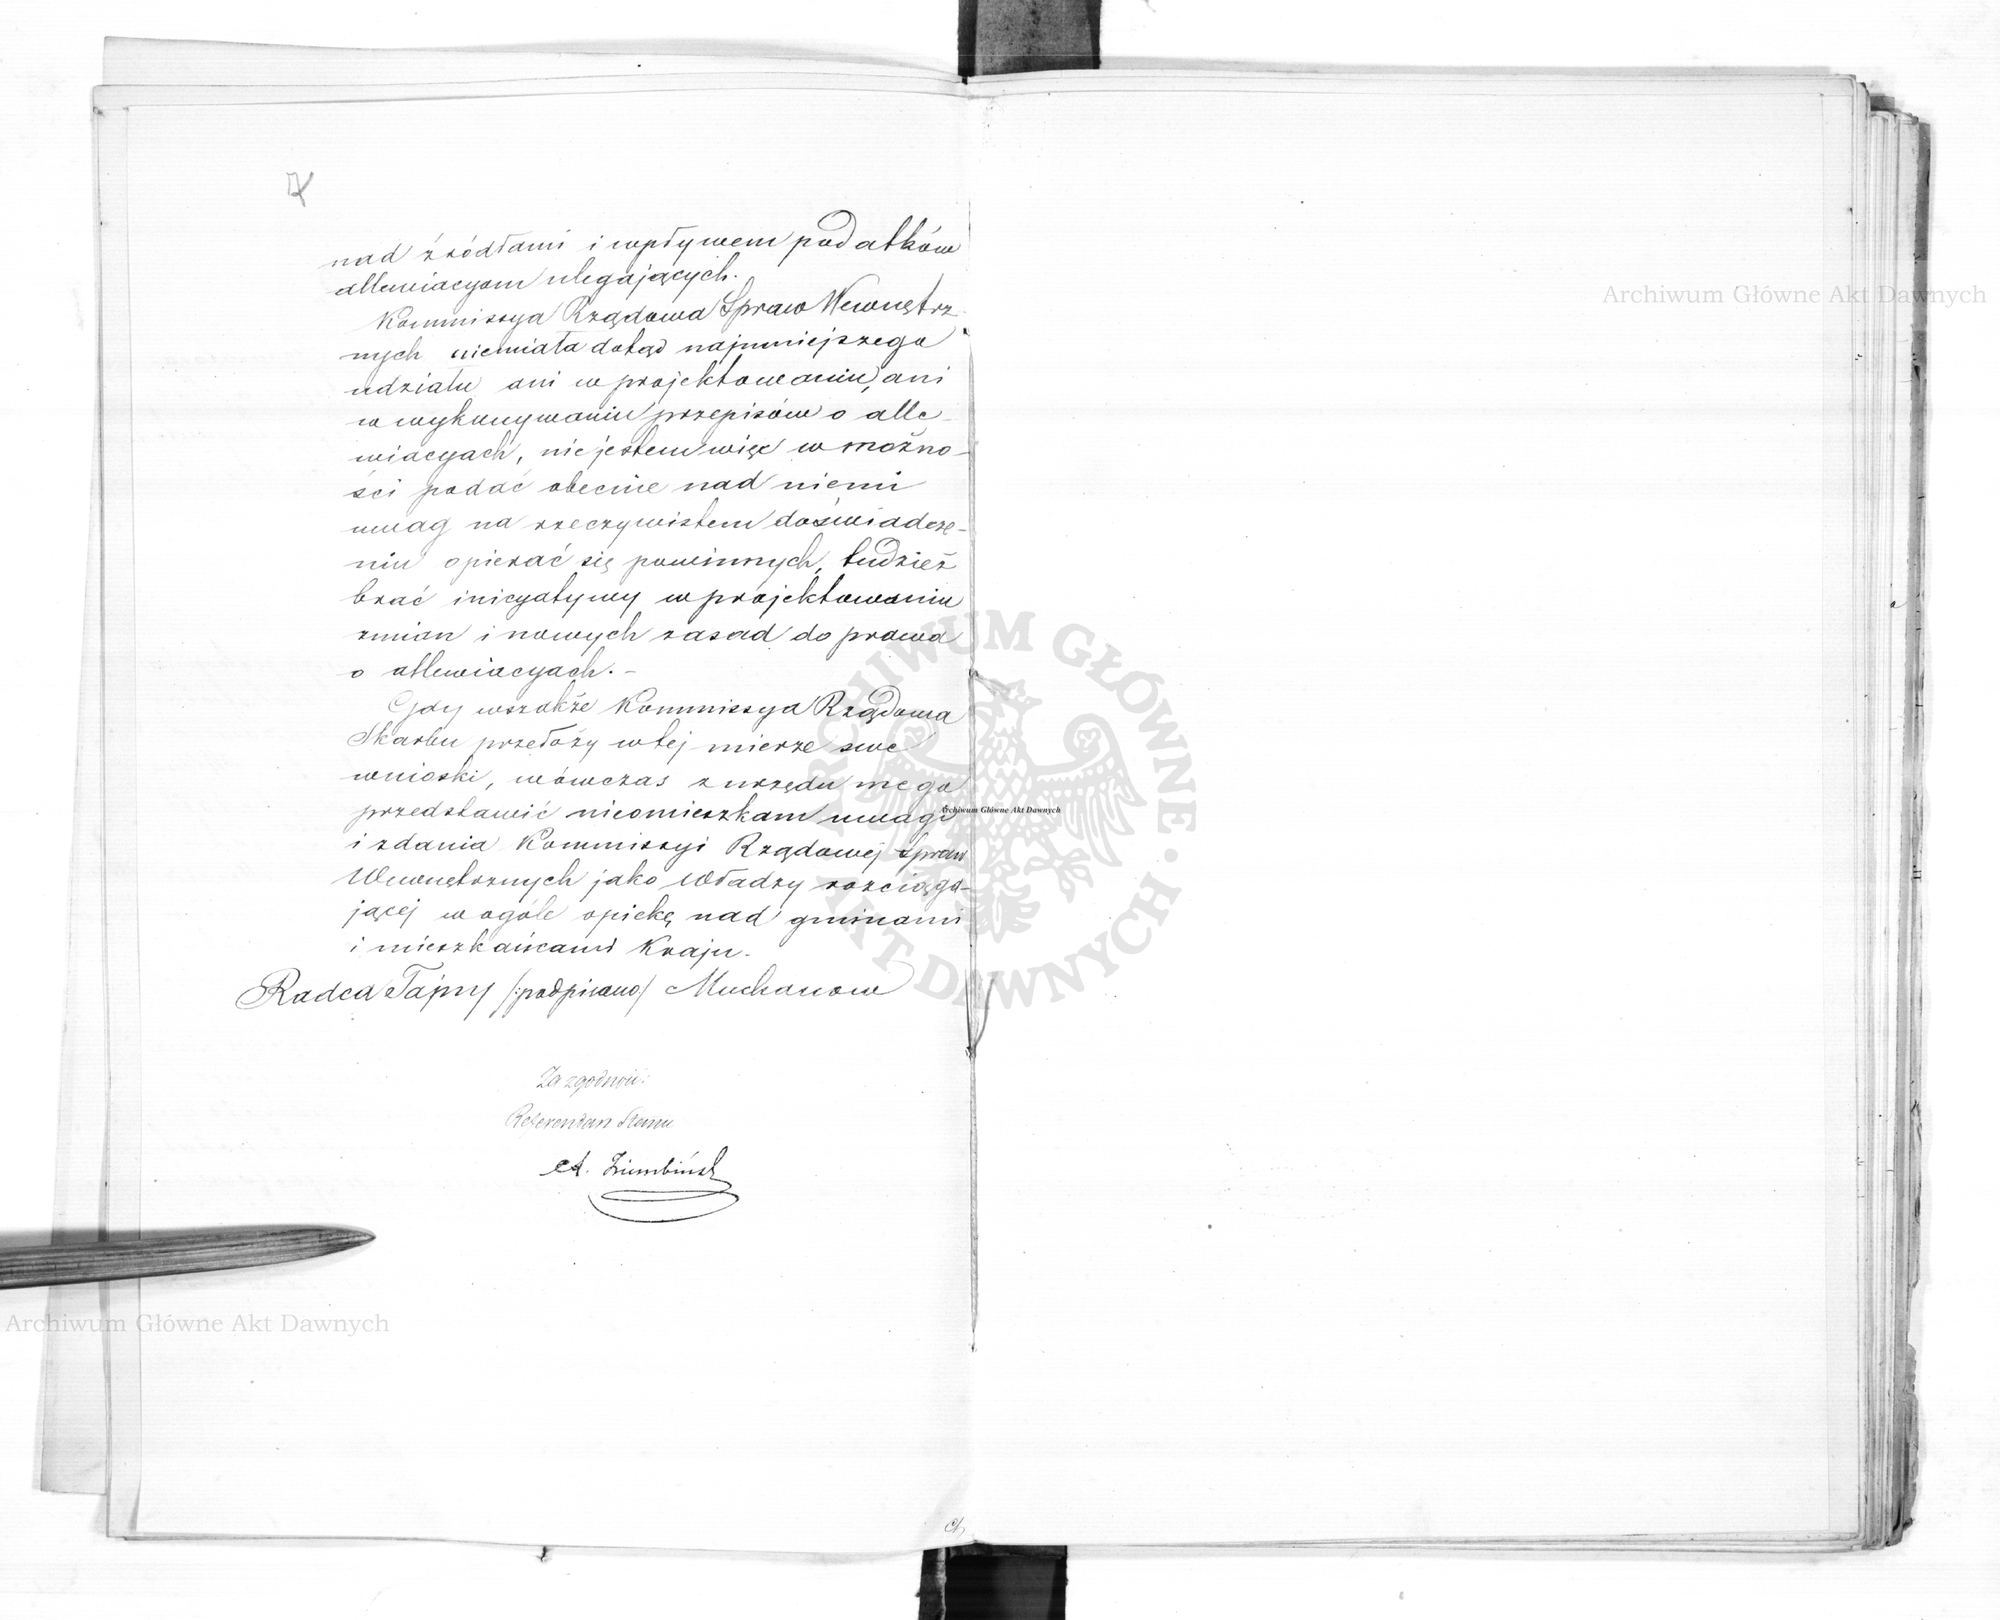 nad źródłami i wpływem podatków
allewiacyom ulegających.
Kommissya Rządowa Spraw Wewnętrz-
nych niemiała dotąd najmniejszego
udziału ani w projektowaniu, ani
w wykonywaniu przepisów o alle-
wiacyach, nie jestem więc w możno-
ści podać obecnie nad niemi
uwag na rzeczywistem doświadcze-
niu opierać się powinnych, tudzież
brać inicyatywy w projektowaniu
zmian i nowych zasad do prawa
o allewiacyach.-
Gdy wszakże Kommissya Rządowa
Skarbu przełoży w tej mierze swe
wnioski, wówczas z urzędu mego
przedstawić nieomieszkam uwagi
i zdania Kommissyi Rządowej Spraw
Wewnętrznych jako Władzy rozciąga-
jącej w ogóle opiekę nad gminami
i mieszkańcami Kraju.
Radca Tajny /:podpisano/ Muchanow
Za zgodność:
Referendarz Stanu
Archiwum Główne Akt Dawnych
Archiwum Główne Akt Dawnych
Archiwum Główne Akt Dawnych
ARCHIWUM GŁÓWNE · AKT DAWNYCH ·